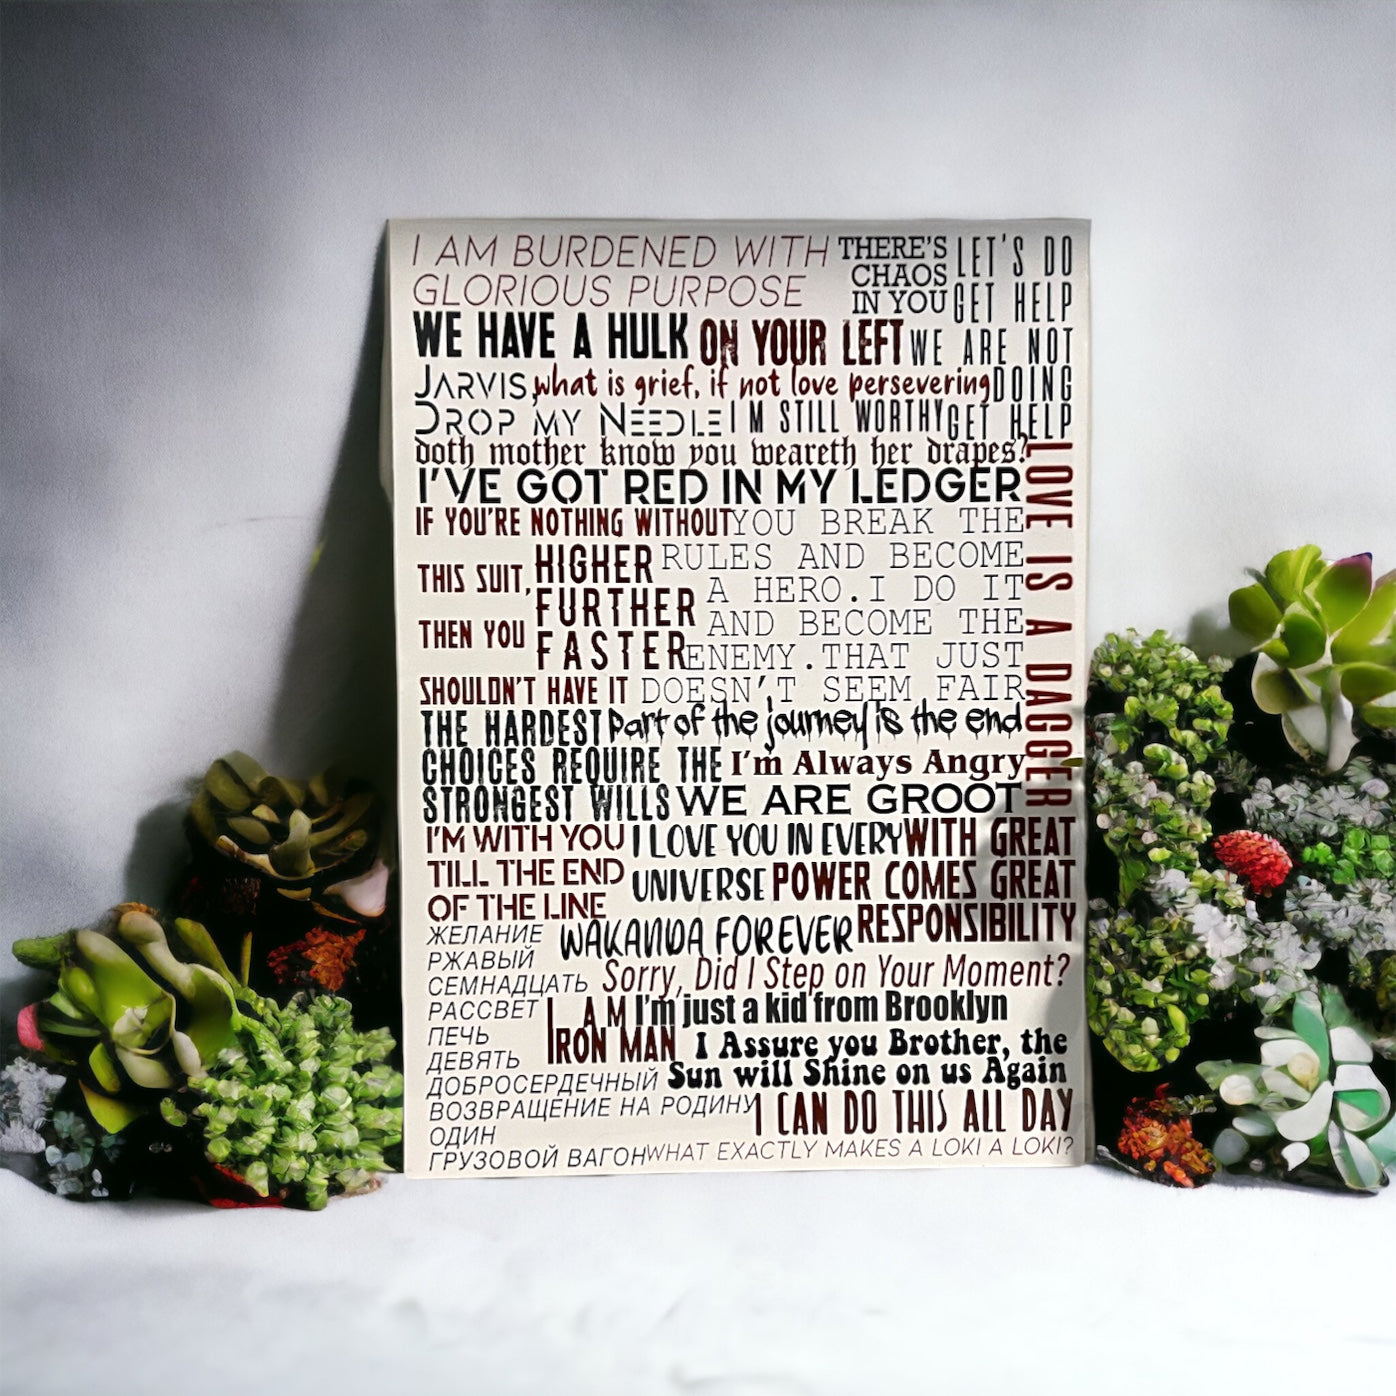 I AM BURDENED WITH
GLORIOUS PURPOSE
THERE'S
CHAOS
IN YOU
LET'S DO
GET HELP
WE ARE NOT
DOING
GET HELP
WE HAVE A HULK
ON YOUR LEFT
JARVIS,
DROP MY NEEDLE
what is grief, if not love persevering
I'M STILL WORTHY
doth mother know you weareth her drapes?
LOVE IS A DAGGER
I'VE GOT RED IN MY LEDGER
IF YOU'RE NOTHING WITHOUT
THIS SUIT,
THEN YOU
SHOULDN'T HAVE IT
HIGHER
FURTHER
FASTER
YOU BREAK THE
RULES AND BECOME
A HERO.I DO IT
AND BECOME THE
ENEMY.THAT JUST
DOESN'T SEEM FAIR
THE HARDEST
CHOICES REQUIRE THE
STRONGEST WILLS
part of the journey is the end
I'm Always Angry
WE ARE GROOT
I'M WITH YOU
TILL THE END
OF THE LINE
I LOVE YOU IN EVERY
UNIVERSE
WITH GREAT
POWER COMES GREAT
RESPONSIBILITY
WAKANDA FOREVER
ЖЕЛАНИЕ
РЖАВЫЙ
СЕМНАДЦАТЬ
РАССВЕТ
ПЕЧЬ
ДЕВЯТЬ
ДОБРОСЕРДЕЧНЫЙ
ВОЗВРАЩЕНИЕ НА РОДИНУ
ОДИН
ГРУЗОВОЙ ВАГОН
Sorry, Did I Step on Your Moment?
I AM
IRON MAN
I'm just a kid from Brooklyn
I Assure you Brother, the
Sun will Shine on us Again
I CAN DO THIS ALL DAY
WHAT EXACTLY MAKES A LOKI A LOKI?